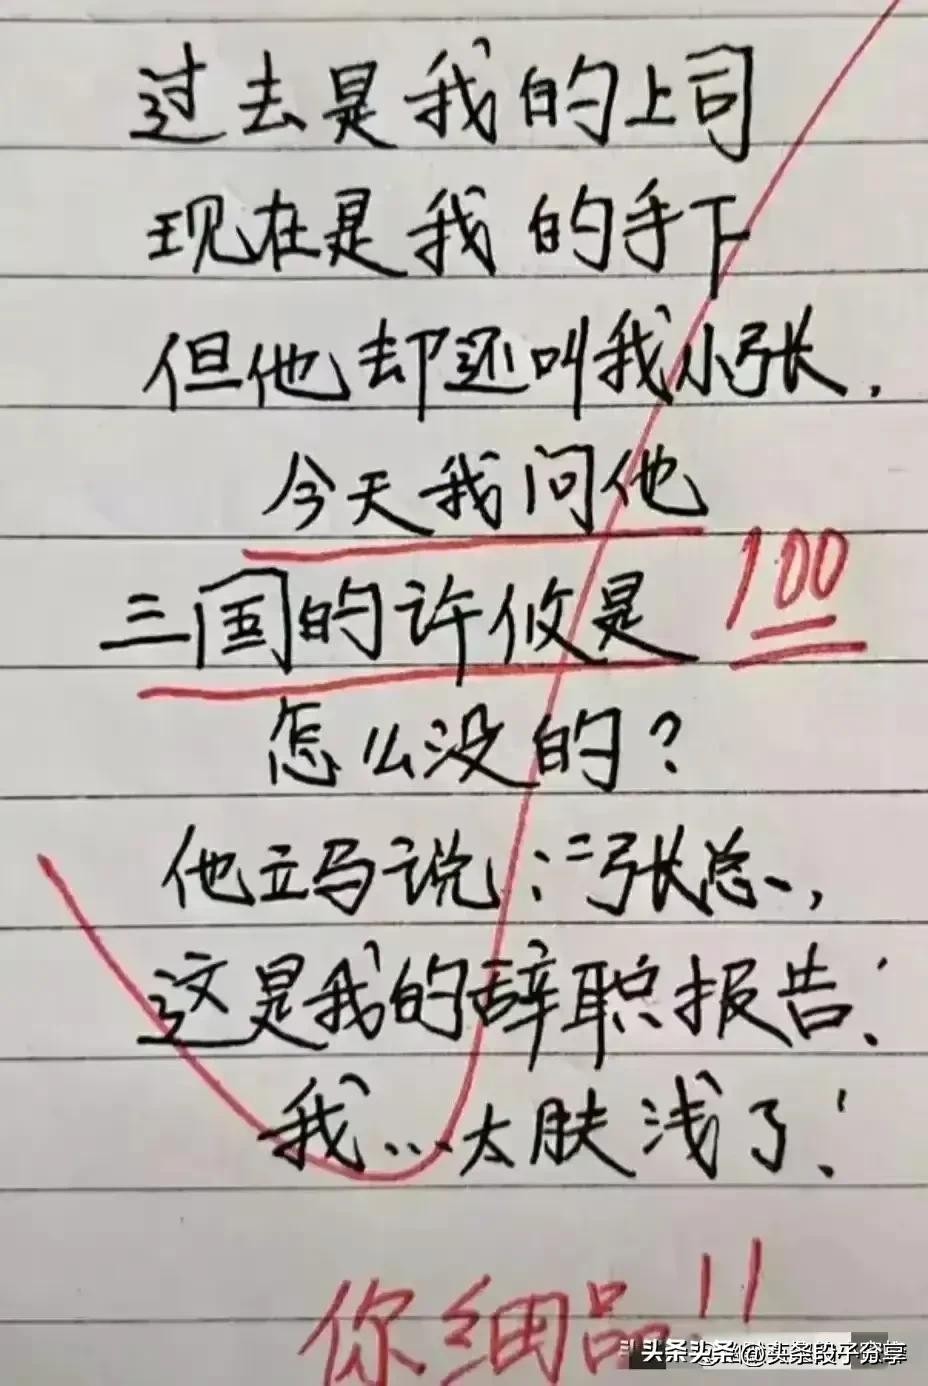 过去是我的上司
现在是我的手下
但他却还叫我小张.
今天我问他
三国的许攸是
100
怎么没的?
他立马说:"张总、,
这是我的辞职报告!
我...太肤浅了!
你细品!!
@头条段子分享